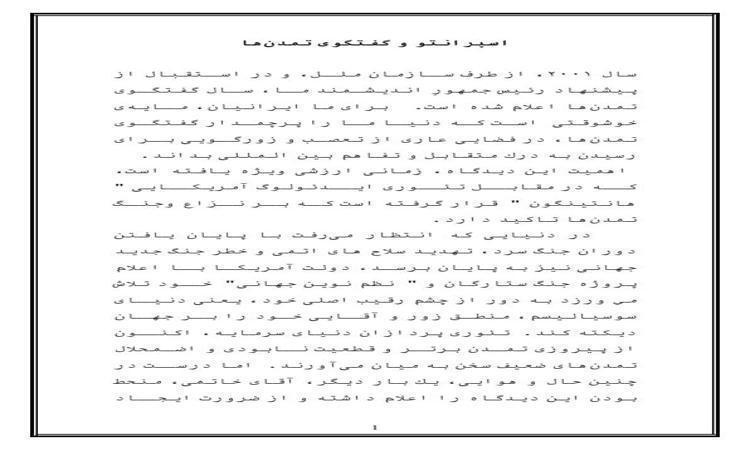 اسپرانتو و گفتگوی تمدن‌ها
سال ۲۰۰۱، از طرف سازمان ملل، و در استقبال از
پیشنهاد رئیس‌جمهور اندیشمند ما، سال گفتگوی
تمدن‌ها اعلام شده است. برای ما ایرانیان، مایه‌ی
خوشوقتی است که دنیا ما را پرچمدار گفتگوی
تمدن‌ها، در فضایی عاری از تعصب و زورگویی برای
رسیدن به درك متقابل و تفاهم بین المللی بداند.
اهمیت این دیدگاه، زمانی ارزشی ویژه یافته است،
که در مقابل تئوری ایدئولوگ آمریکایی "
هانتینگون " قرار گرفته است که بر نزاع وجنگ
تمدن‌ها تاکید دارد.
در دنیایی که انتظار می‌رفت با پایان یافتن
دوران جنگ سرد، تهدید سلاح های اتمی و خطر جنگ جدید
جهانی نیز به پایان برسد، دولت آمریکا با اعلام
پروژه جنگ ستارگان و " نظم نوین جهانی" خود تلاش
می ورزد به دور از چشم رقیب اصلی خود، یعنی دنیای
سوسیالیسم، منطق زور و آقایی خود را بر جهان
دیکته کند. تئوری پردازان دنیای سرمایه، اکنون
از پیروزی تمدن برتر و قطعیت نابودی و اضمحلال
تمدن‌های ضعیف سخن به میان می‌آورند. اما درست در
چنین حال و هوایی، یك بار دیگر، آقای خاتمی، منحط
بودن این دیدگاه را اعلام داشته و از ضرورت ایجاد
1